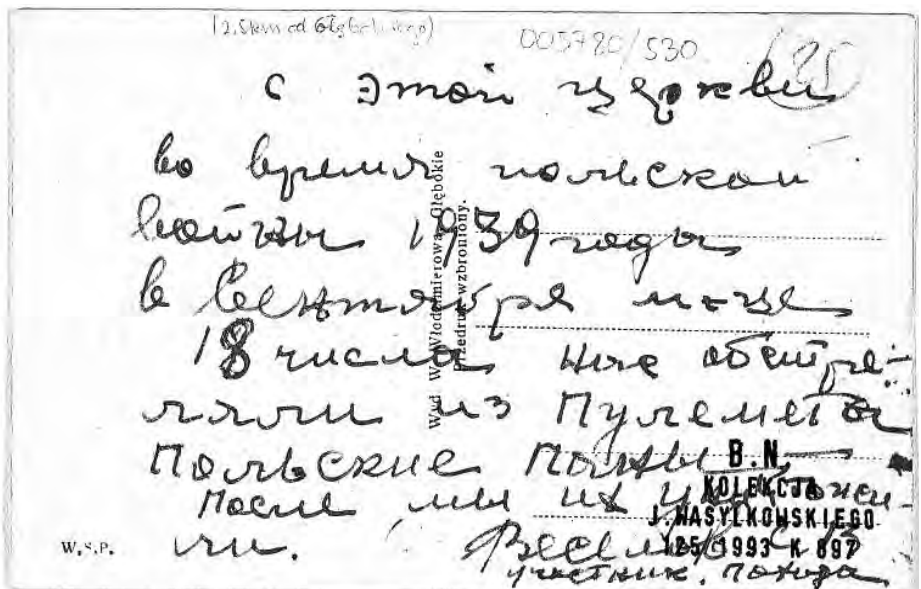 (2.5km od Głębokiego)
005780/530
25
с этой церкви
во время польской
войны 1939 годы
в Сентября м-це
18 числа нас обстре-
ляли из Пулемета
Польские Паны
После мы их уничтожи-
ли.
участник. похода
Wyd. W. Włodzimierowa, Głębokie
Przedruk wzbroniony.
W.S.P.
B.N
KOLEKCJA
J.WASYLKOWSKIEGO
125 1993 K 897